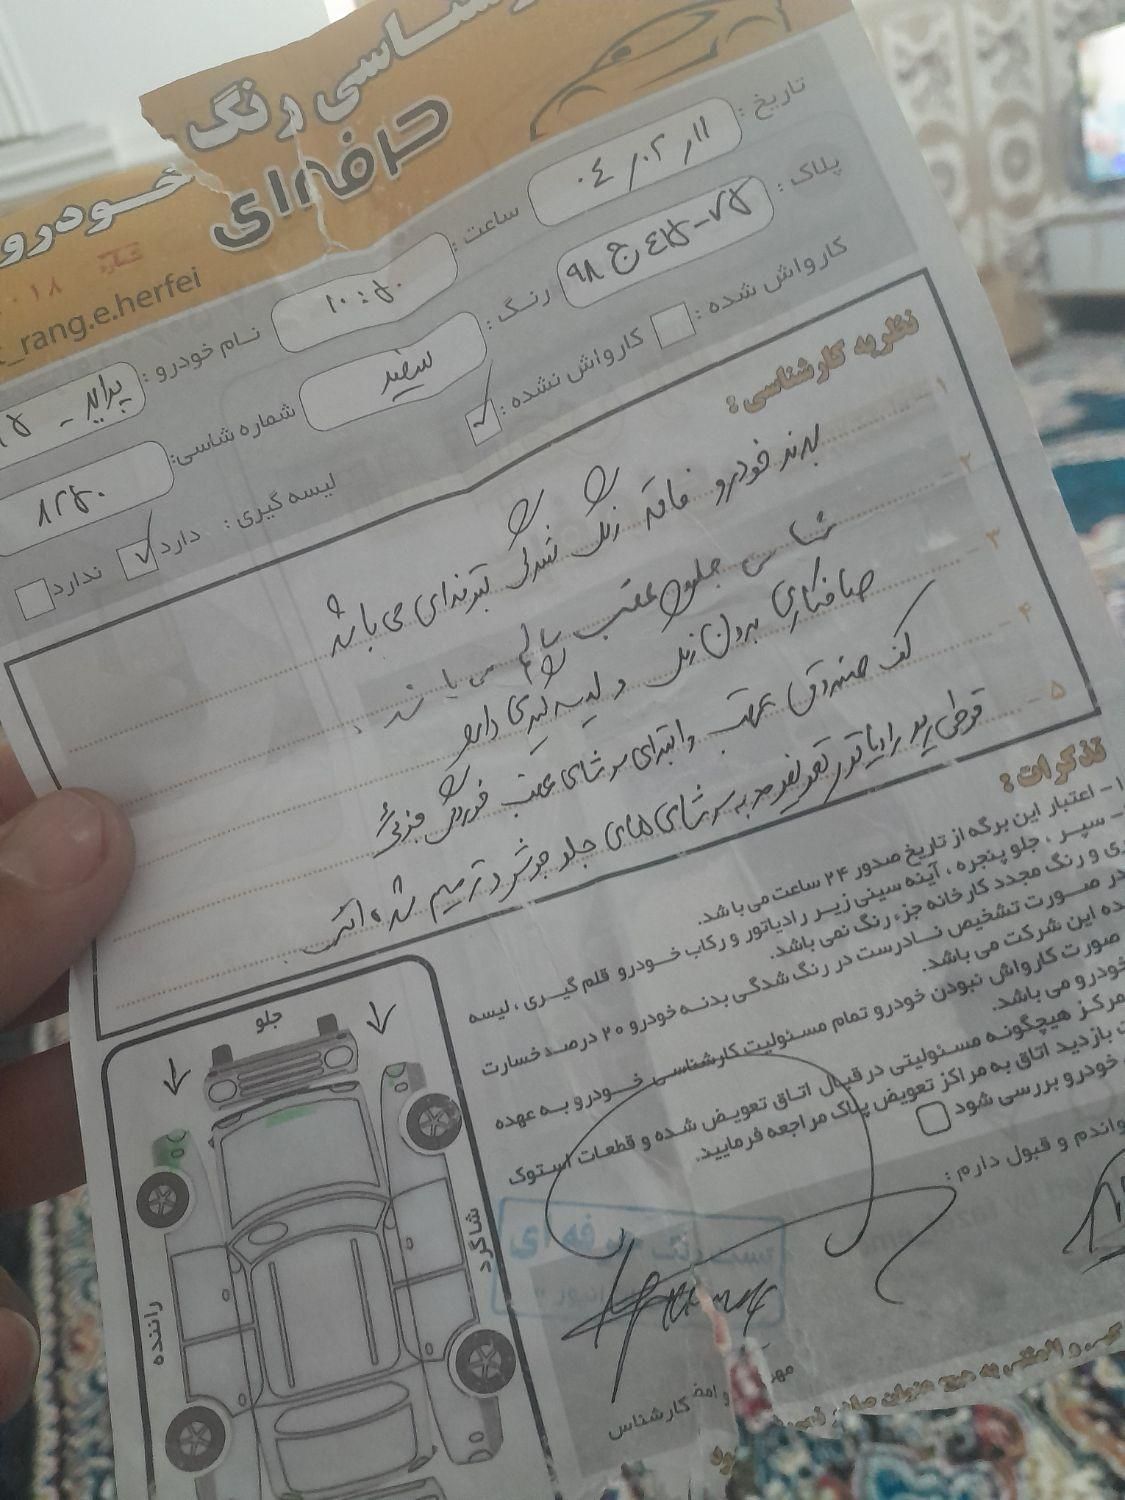 کارشناسی رنگ
خودرو حرفه‌ای
_rang.e.herfei
شماره
۰۱۸
تاریخ : ۰۴/۰۲/۱۱
ساعت : ۱۰:۵۰
نام خودرو : پراید
پلاک :
رنگ : سفید
شماره شاسی:
کارواش شده :
کارواش نشده : ✓
لیسه گیری : دارد ✓ ندارد
نظریه کارشناسی :
۱- بدنه خودرو فاقد رنگ شدگی غیرفنی ای می باشد
۲- شاسی جلو و عقب سالم می باشد .
۳- صافکاری بدون رنگ و لیسه گیری دارد
۴- کف صندوق عقب و ابتدای سرشاسی عقب خوردگی جزئی
۵- قوطی زیر رادیاتور تعویض و به سرشاسی های جلو جوش و ترمیم شده است .
تذکرات :
۱- اعتبار این برگه از تاریخ صدور ۲۴ ساعت می باشد.
- سپر ، جلو پنجره ، آینه سینی زیر رادیاتور و رکاب خودرو قلم گیری ، لیسه
ری و رنگ مجدد کارخانه جزء رنگ نمی باشد.
در صورت تشخیص نادرست در رنگ شدگی بدنه خودرو ۲۰ درصد خسارت
ده این شرکت می باشد.
صورت کارواش نبودن خودرو تمام مسئولیت کارشناسی خودرو به عهده
خودرو می باشد.
مرکز هیچگونه مسئولیتی در قبال اتاق تعویض شده و قطعات استوک
بازدید اتاق به مراکز تعویض پلاک مراجعه فرمایید.
خودرو بررسی شود
واندم و قبول دارم :
جلو
شاگرد
راننده
تست رنگ حرفه ای
مهر و امضا کارشناس